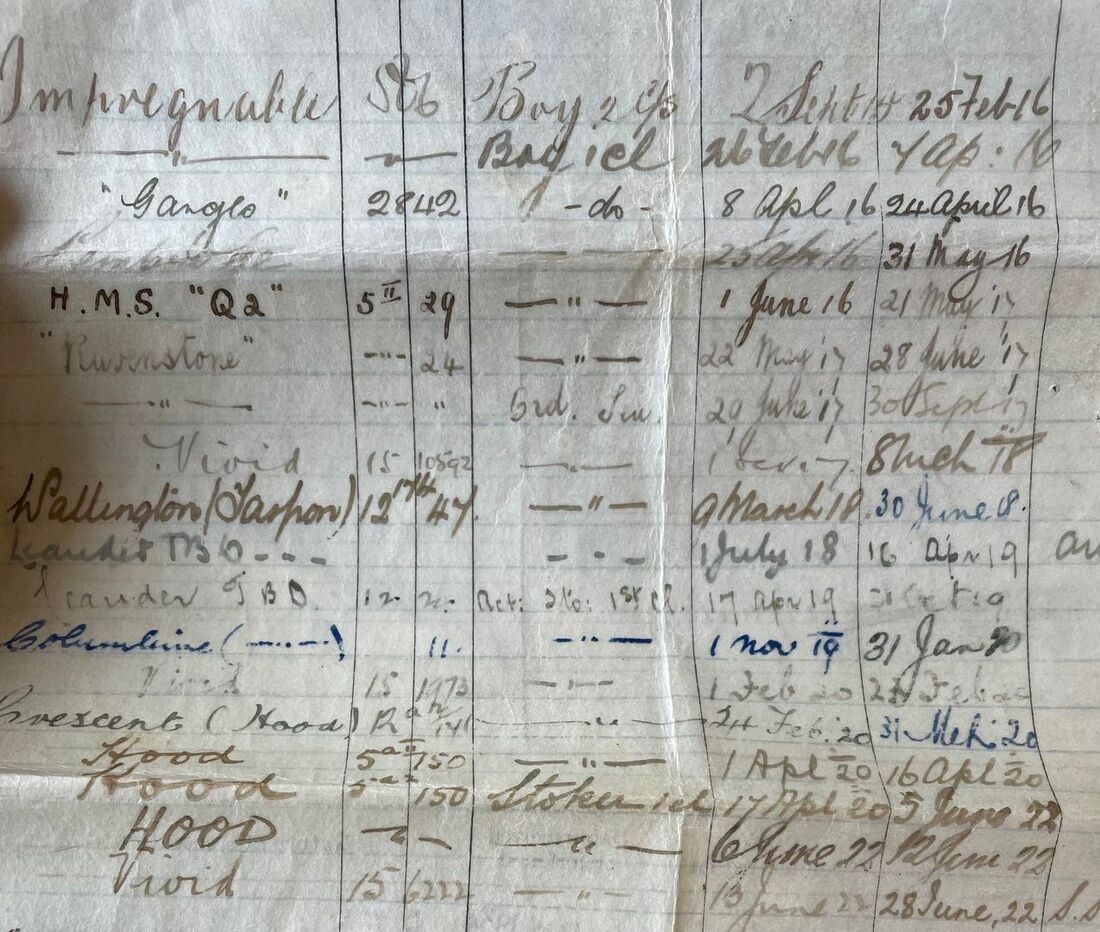 Impregnable Boy 2 Cls 2 Sept 15 25 Feb 16
—"— — Boy 1cl 26 Feb 16 7 Ap: 16
"Ganges" 2842 - do - 8 Apl 16 24 April 16
— 25 Apl 16 31 May 16
H.M.S. "Q2" 5 II 29 — " — 1 June 16 21 May '17
"Ravenstone" -"- 24 — " — 22 May '17 28 June '17
—"— -"- " Ord. Sea. 29 June '17 30 Sept 17
Vivid 15 10592 —"— 8 Mch 18
Wallington (Tarpon) 12 47 — " — 9 March 18. 30 June 18.
Leander TBD - - - - " - 1 July 18 16 Apr 19
Leander TBD. 12 Act: Sto: 1st Cl. 17 Apr 19 31 Oct 19
Columbine ( —"— ) 11. —"— 1 Nov 19 31 Jan 20
Vivid 15 1973 —"— 1 Feb 20 Feb 20
Crescent (Hood) —"— 24 Feb. 20 31 Mch 20
Hood 5 150 — " — 1 Apl 20 16 Apl 20
Hood 5 150 Stoker 1cl 17 Apl 20 5 June 22
HOOD —"— —"— 6 June 22 12 June 22
Vivid 15 6222 — " — 13 June 22 28 June, 22 S.S